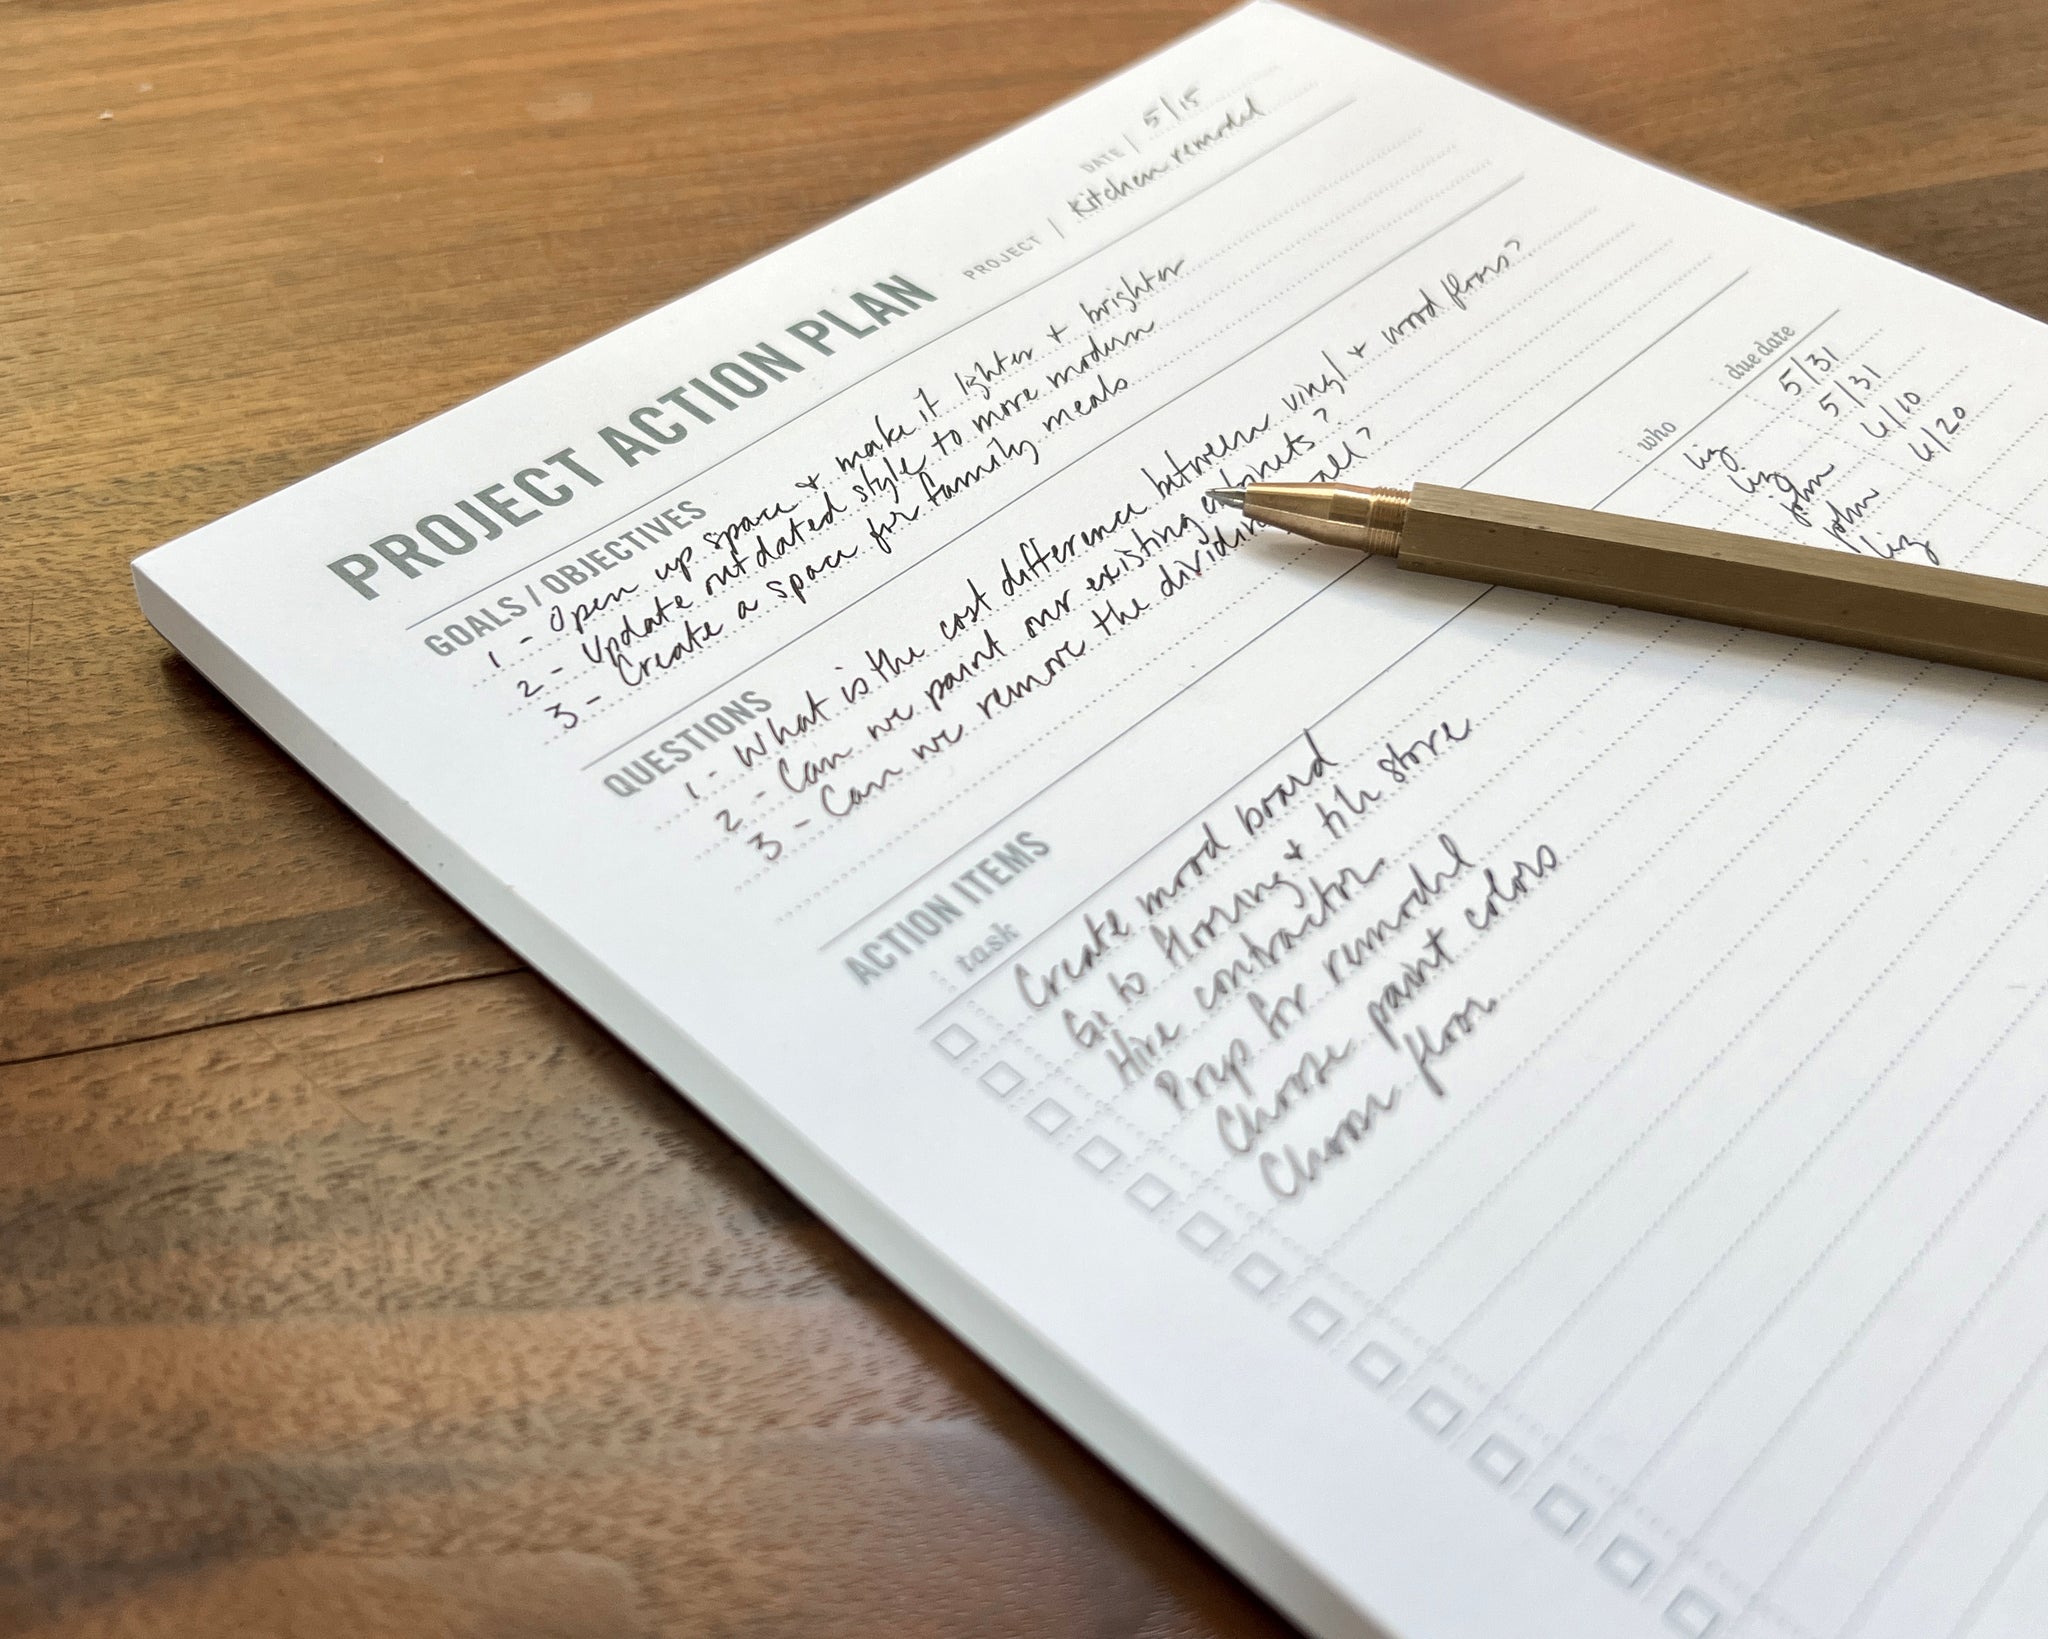 DATE | 5/15
PROJECT ACTION PLAN PROJECT | Kitchen remodel
GOALS / OBJECTIVES
1 - Open up space & make it lighter + brighter
2 - Update outdated style to more modern
3 - Create a space for family meals
QUESTIONS
1 - What is the cost difference between vinyl & wood floors?
2 - Can we paint our existing cabinets?
3 - Can we remove the dividing wall?
ACTION ITEMS
task who due date
Create mood board Liz 5/31
Go to flooring & tile store Liz 5/31
Hire contractor John 6/10
Prep for remodel John 6/20
Choose paint colors Liz
Choose floor